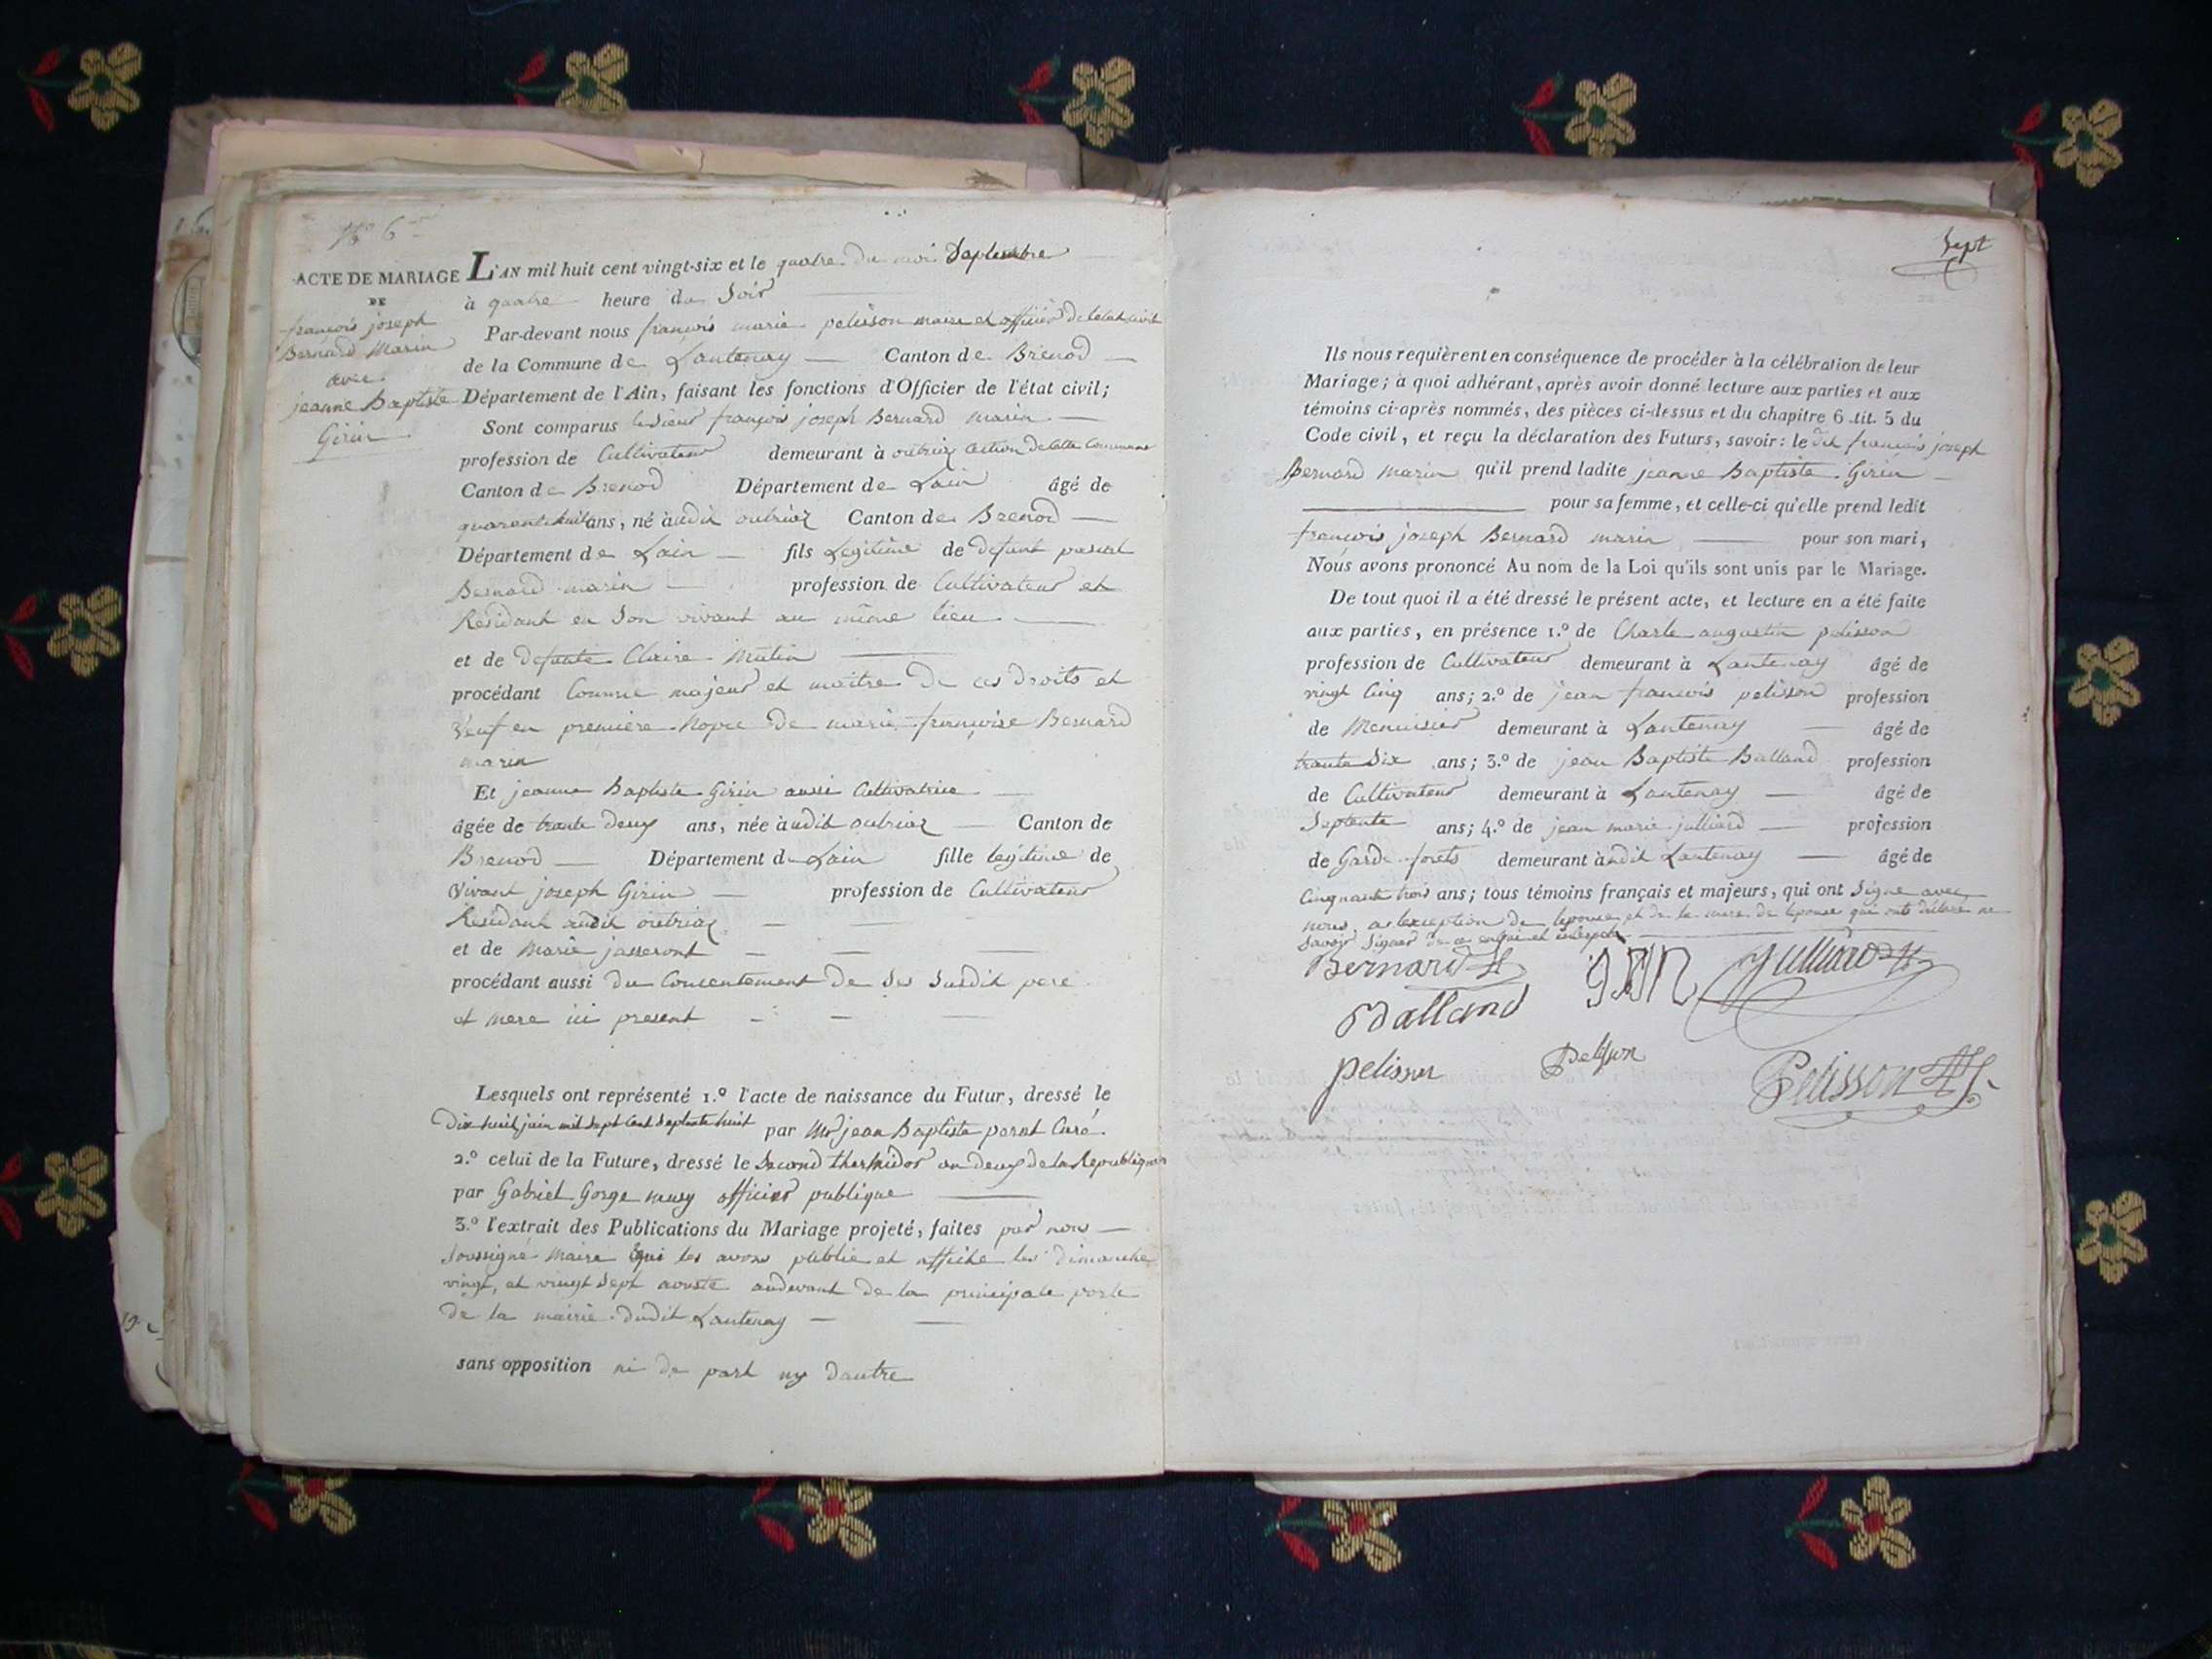 N° 6
ACTE DE MARIAGE
DE
françois joseph
Bernard Marin
avec
jeanne Baptiste
Girin
L'AN mil huit cent vingt-six et le quatre du moi Septembre
à quatre heure du Soir
Par-devant nous françois marie pelisson maire et officier de létat civil
de la Commune de Lantenay Canton de Brenod
Département de l'Ain, faisant les fonctions d'Officier de l'état civil;
Sont comparus le Sieur françois joseph Bernard marin
profession de Cultivateur demeurant à outriaz section de cette Commune
Canton de Brenod Département de Lain âgé de
quarentehuit ans, né audit outriaz Canton de Brenod
Département de Lain fils Legitime de defunt pascal
Bernard marin profession de Cultivateur et
Residant en Son vivant au même lieu
et de defunte Claire Mutin
procédant Comme majeur et maitre de ces droits et
Veuf en premiere Nopce de marie françoise Bernard
marin
Et jeanne Baptiste Girin aussi Cultivatrice
âgée de trante deux ans, née audit outriaz Canton de
Brenod Département de Lain fille legitime de
Vivant joseph Girin profession de Cultivateur
Residant audit outriaz
et de Marie jasseront
procédant aussi du Concentement de Ses Susdit pere
et mere ici present
Lesquels ont représenté 1.º l'acte de naissance du Futur, dressé le
Dix huit juin mil Sept Cent Septante huit par Mr jean Baptiste Curé.
2.º celui de la Future, dressé le Second thermidor an deux de la Republique
par Gabriel Gorge officier publique
3.º l'extrait des Publications du Mariage projeté, faites par nous
Soussigné Maire qui les avons publie et affiché les dimanche
vingt, et vingt Sept aouste audevant de la principale porte
de la mairie dudit Lantenay
sans opposition ni de part ny dautre
Sept
Ils nous requièrent en conséquence de procéder à la célébration de leur
Mariage; à quoi adhérant, après avoir donné lecture aux parties et aux
témoins ci-après nommés, des pièces ci-dessus et du chapitre 6 tit. 5 du
Code civil, et reçu la déclaration des Futurs, savoir: le dit françois joseph
Bernard Marin qu'il prend ladite jeanne Baptiste Girin
pour sa femme, et celle-ci qu'elle prend ledit
françois joseph Bernard marin pour son mari,
Nous avons prononcé Au nom de la Loi qu'ils sont unis par le Mariage.
De tout quoi il a été dressé le présent acte, et lecture en a été faite
aux parties, en présence 1.º de Charle augustin pelisson
profession de Cultivateur demeurant à Lantenay âgé de
vingt Cinq ans; 2.º de jean francois pelisson profession
de Menuisier demeurant à Lantenay âgé de
trante Six ans; 3.º de jean Baptiste Balland profession
de Cultivateur demeurant à Lantenay âgé de
Septente ans; 4.º de jean marie julliard profession
de Garde forets demeurant àudit Lantenay âgé de
Cinquante trois ans; tous témoins français et majeurs, qui ont Signé avec
nous, a lexception de lepouse et de la mere de lepouse qui ont déclaré ne
Savoir Signer de ce enquis
Bernard girin Julliard
Balland
pelisson Pelisson
Pelisson